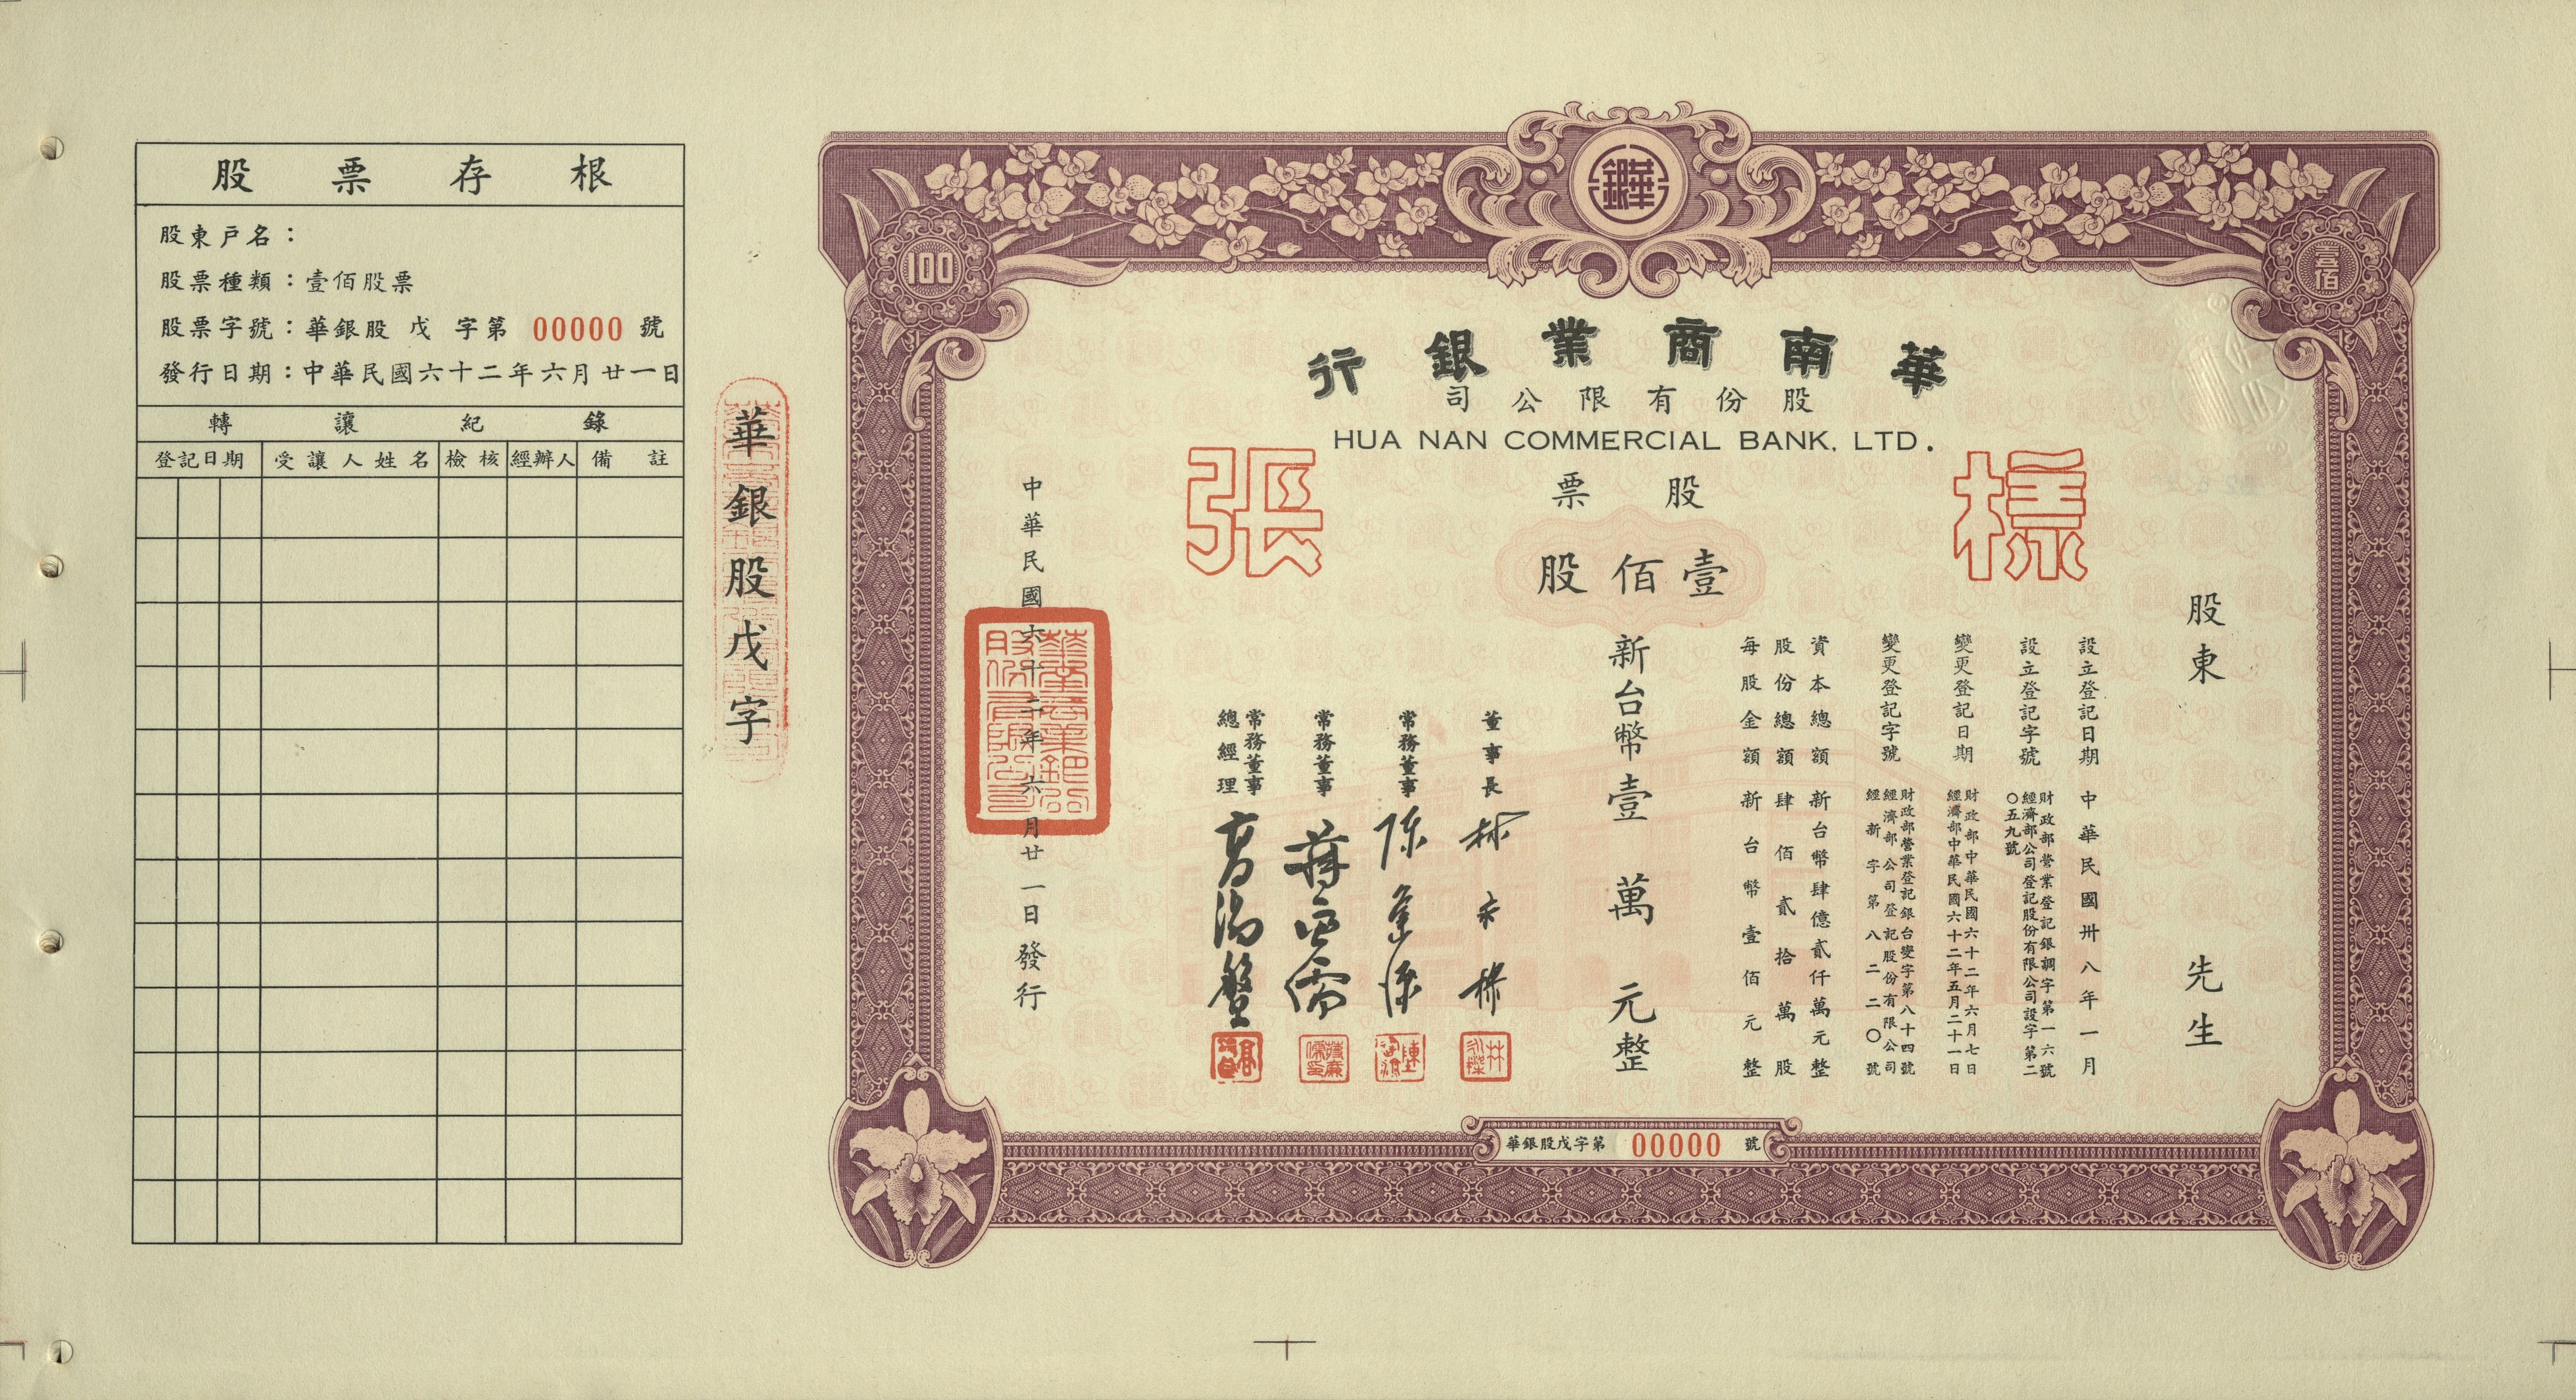 股票存根
股東戶名：
股票種類：壹佰股票
股票字號：華銀股 戊 字第 00000 號
發行日期：中華民國六十二年六月廿一日
轉讓紀錄
登記日期 受讓人姓名 檢核 經辦人 備註
華銀股戊字
100
華銀
壹佰
華南商業銀行
股份有限公司
HUA NAN COMMERCIAL BANK, LTD.
樣張
股票
壹佰股
股東 先生
設立登記日期 中華民國卅八年一月
設立登記字號 財政部營業登記銀調字第一六號
經濟部公司登記股份有限公司設字第二〇五九號
變更登記日期 財政部中華民國六十二年六月七日
經濟部中華民國六十二年五月二十一日
變更登記字號 財政部營業登記銀台變字第八十四號
經濟部公司登記股份有限公司
經新字第八二二〇號
資本總額 新台幣肆億貳仟萬元整
股份總額 肆佰貳拾萬股
每股金額 新台幣壹佰元整
新台幣壹萬元整
董事長
常務董事
常務董事
常務董事
總經理
中華民國六十二年六月廿一日發行
華南商業銀行股份有限公司
華銀股戊字第 00000 號